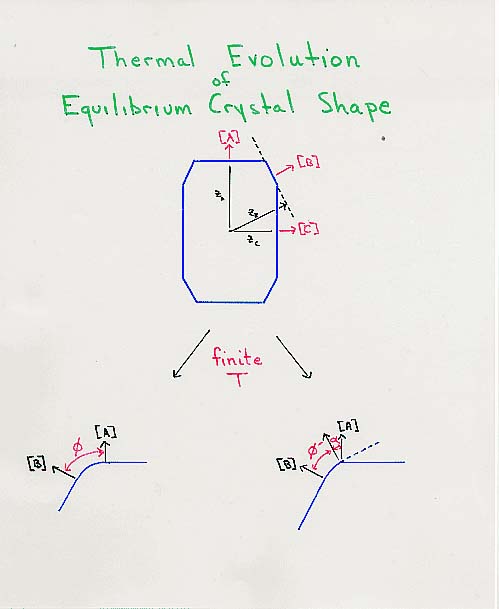 Thermal Evolution
of
Equilibrium Crystal Shape
[A]
[B]
[C]
Z_A
Z_B
Z_C
finite
T
[A]
ϕ
[B]
[A]
α
ϕ
[B]